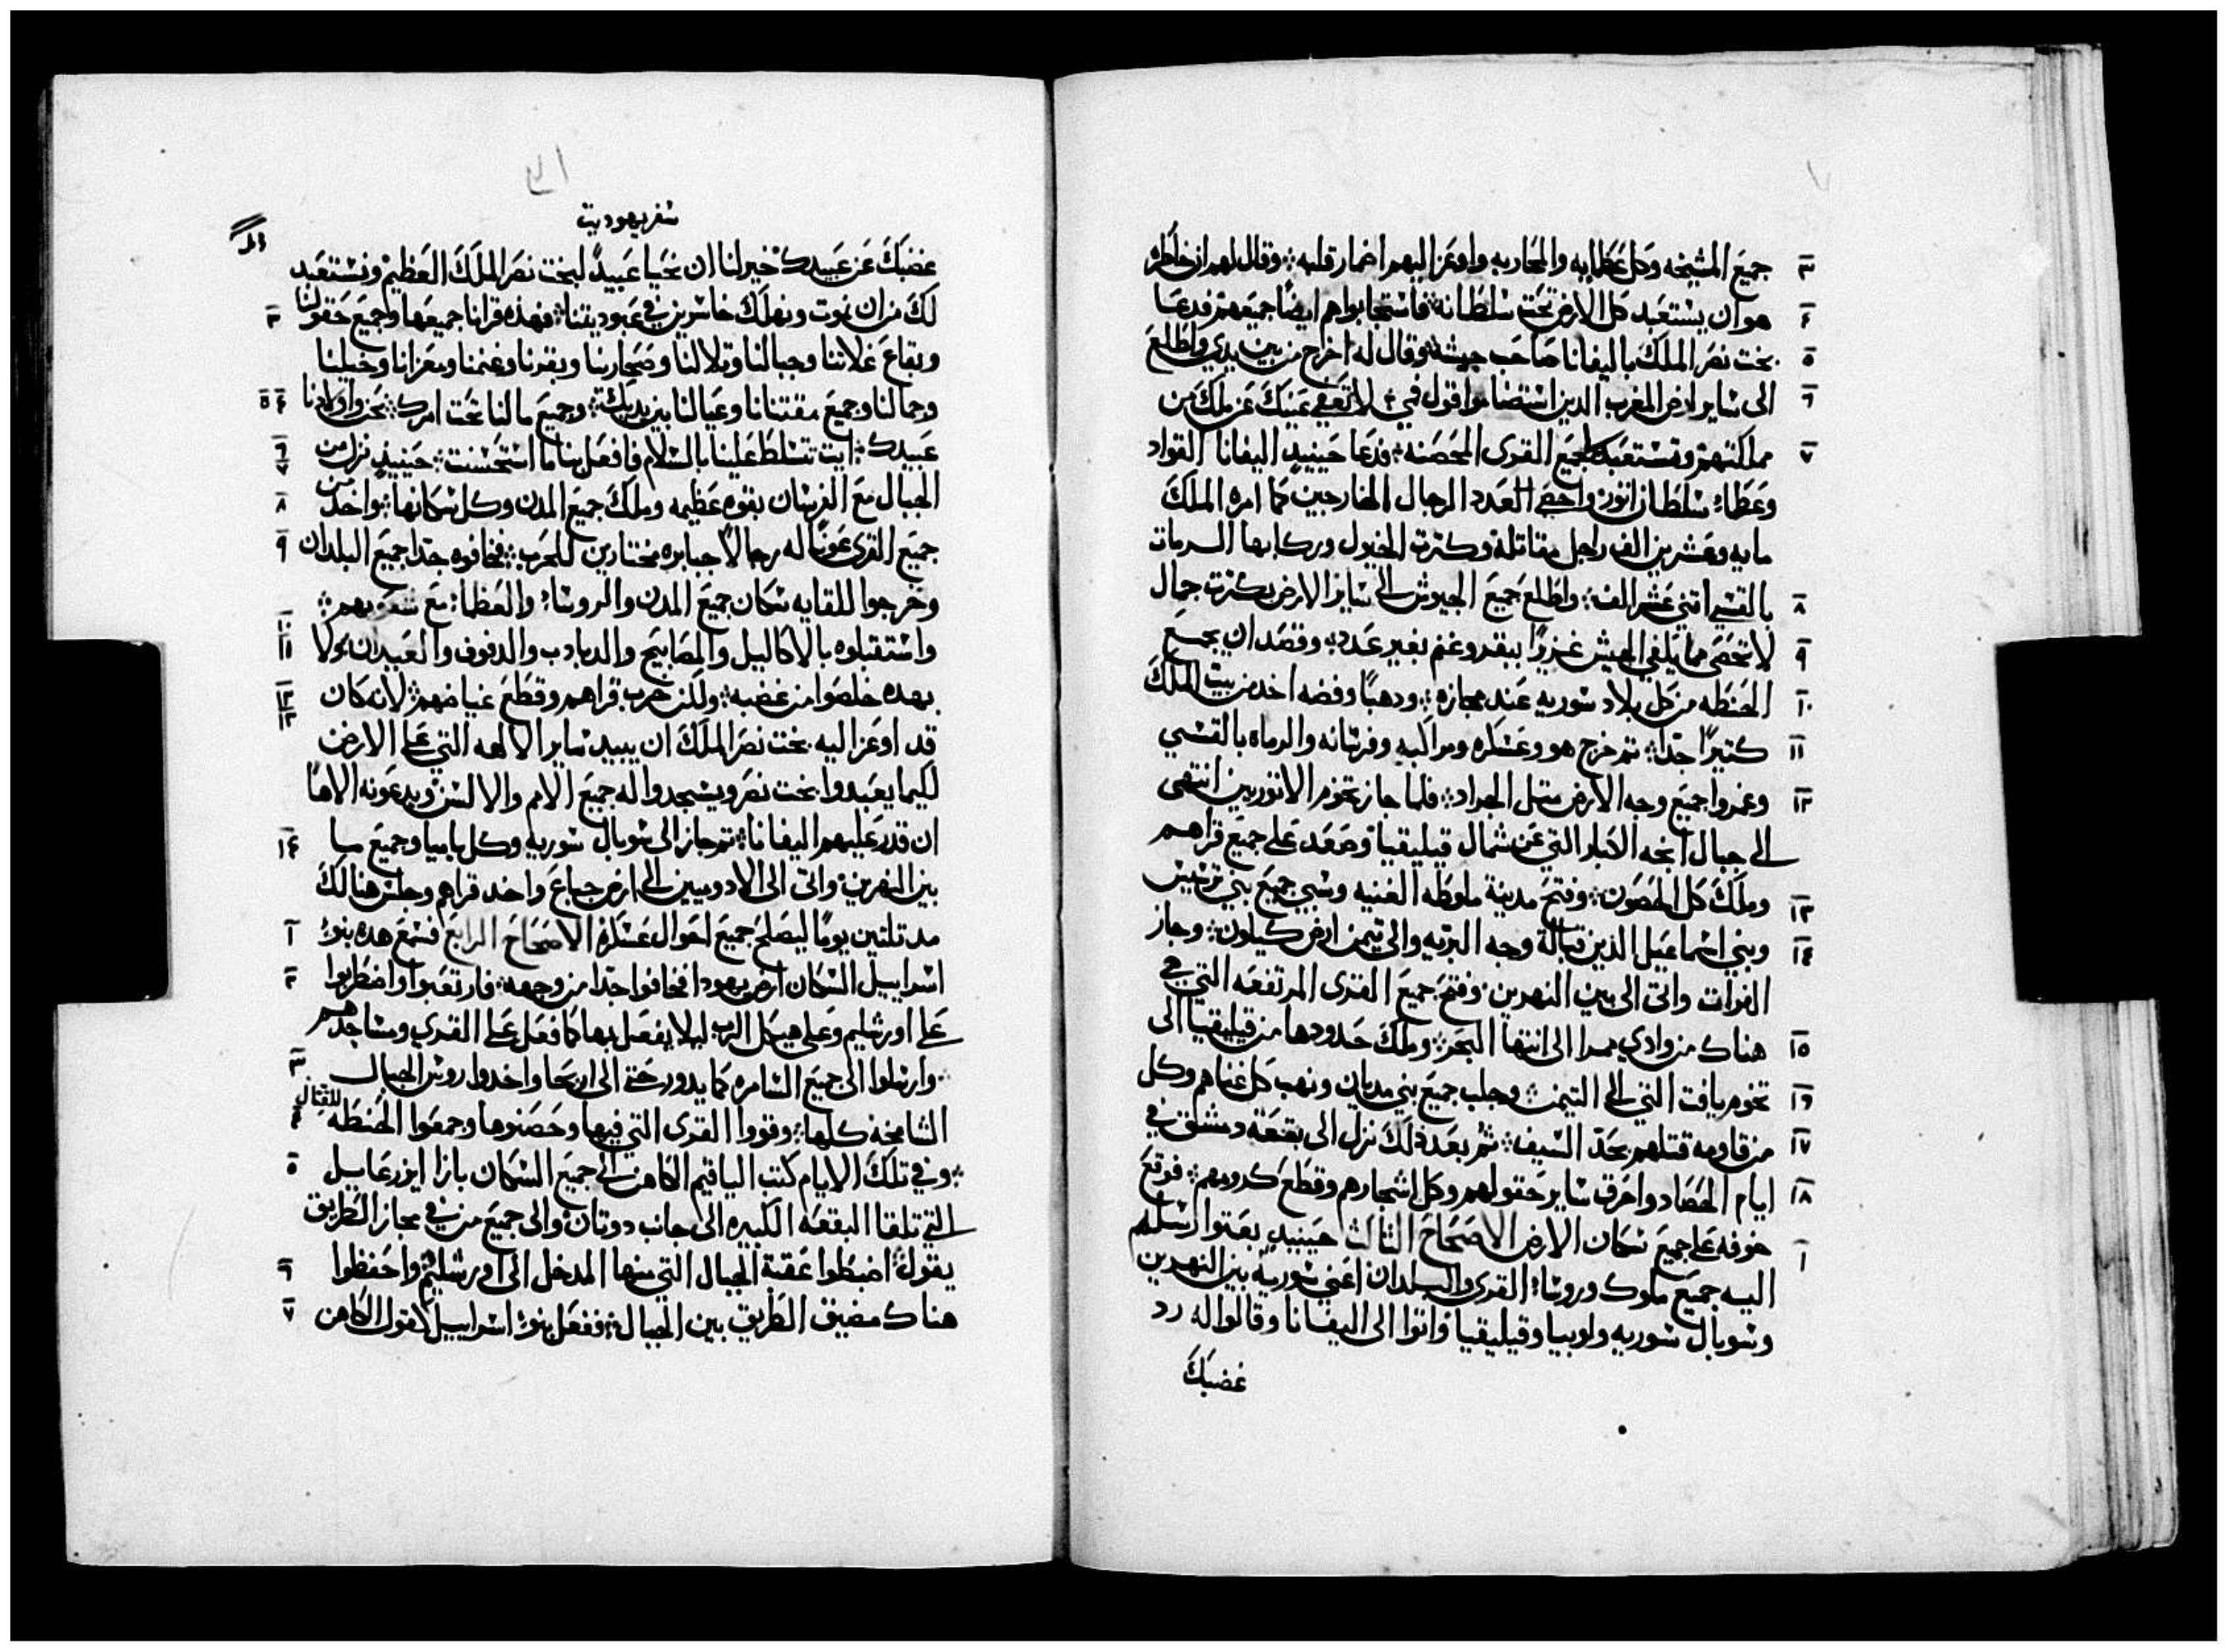 جميع المشيخه وكل عظمايه والمحاربه واوعز اليهم اضمار قلبه ؞ وقال لهم ان خاطره ٣
هو ان يستعبد كل الارض تحت سلطانه ؞ فاستجابوا هم ايضًا جميعهم فدعا ٤
بخت نصر الملك باليفانا صاحب جيشه ؞ وقال له اخرج من بين يدي واطلع ٥
الى ساير ارض المغرب الدين استضاموا قول فمي ؞ لا تعفي عينك عن ملك من ٦
مملكتهم وتستعبد لي جميع القرى المحصنه ؞ فدعا حينيدٍ اليفانا القواد ٧
وعظماء سلطان اتور واحصى العدد الرجال الخارجين كما امره الملك
مايه وعشرين الف راجل مقاتلة وكترت الخيول وركابها الرمات
بالقسي اتني عشر الف ؞ واطلع جميع الجيوش الى ساير الارض بكترت جمال ٨
لا تحصى مما يكفي الجيش غزيرًا ببقر وغنم بغير عدد ؞ وقصد ان يجمع ٩
الحنطه من كل بلاد سوريه عند مجازه ؞ ودهبًا وفضه اخد من بيت الملك ١٠
كتيرًا جدًا ؞ تم خرج هو وعسكره ومراكبه وفرسانه والرماه بالقسي ١١
وغمروا جميع وجه الارض متل الجراد ؞ فلما جاز تخوم الاتوريين انتهى ١٢
الى جبال انجه الكبار التي عن شمال قيليقيا وصعد على جميع قراهم
وملك كل الحصون ؞ وفتح مدينة ملوطه الغنيه وسبي جميع بني ترسيس ١٣
وبني اسماعيل الدين قبالة وجه البريه والى تيمن ارض كيلون ؞ وجاز ١٤
الفرات واتى الى بين النهرين وفتح جميع القرى المرتفعه التي في
هناك من وادي ممرا الى انتها البحر ؞ وملك حدودها من قيليقيا الى ١٥
تخوم يافت التي الى التيمن ؞ وجلب جميع بني مديان ونهب كل غناهم وكل ١٦
من قاومه قتلهم بحد السيف ؞ تم بعد دلك نزل الى بقعة دمشق في ١٧
ايام الحصاد واحرق ساير حقولهم وكل اشجارهم وقطع كرومهم ؞ فوقع ١٨
خوفه على جميع سكان الارض الاصحاح التالت حينيدٍ بعتوا رسلهم ١
اليه جميع ملوك وروساء القرى والبلدان اعني سورية بين النهرين
وسوبال سوريه ولوبيا وقيليقيا فاتوا الى اليفانا وقالوا له رد
غضبك
سفر يهوديت
غضبك عن عبيدك خير لنا ان نحيا عبيدًا لبخت نصر الملك العظيم ونستعبد
لك من ان نموت ونهلك خاسرين في عبوديتنا ؞ فهده قرانا جميعها وجميع حقولنا ٣
وبقاع غلاتنا وجبالنا وتلالنا وصحارينا وبقرنا وغنمنا ومعزانا وخيلنا
وجمالنا وجميع مقتنانا وعيالنا بين يديك ؞ وجميع مالنا تحت امرك ؞ نحن واولادنا ٤ ٥
عبيدك ؞ ايت تسلط علينا بالسلام فافعل بنا ما استحسنت ؞ حينيدٍ نزل من ٦ ٧
الجبال مع الفرسان بقوه عظيمه وملك جميع المدن وكل سكانها ؞ واخد من ٨
جميع القرى عونًا له رجالًا جبابره مختارين للحرب ؞ فخافوه جدًا جميع البلدان ٩
وخرجوا للقايه سكان جميع المدن والروساء والعظماء مع شعوبهم ؞
واستقبلوه بالاكاليل والمصابيح والدبادب والدفوف والعيدان ؞ ولا ١٠ ١١
بهده خلصوا من غضبه ؞ ولكن خرب قراهم وقطع غياضهم ؞ لانه كان ١٢ ١٣
قد اوعز اليه بخت نصر الملك ان يبيد ساير الالهه التي على الارض
لكيما يعبدوا بخت نصر ويسجدوا له جميع الامم والالسن ويدعونه الاهًا
ان قدر عليهم اليفانا ؞ تم جاز الى سوبال سوريه وكل باميا وجميع ميا ١٤
بين النهرين واتى الى الادوميين الى ارض جباع واخد قراهم وجلس هنالك
مد تلتين يومًا ليصلح جميع احوال عسكره الاصحاح الرابع فسمع هده بنوء ١
اسراييل السكان ارض يهودا فخافوا جدًا من وجهه ؞ فارتعبوا واضطربوا ٢
على اورشليم وعلى هيكل الرب ليلا يفعل بها كما فعل على القرى ومساجدهم
؞ وارسلوا الى جميع السامره كما يدور حتى الى اريحا واخدوا روس الجبال ٣
الشامخه كلها ؞ وقووا القرى التي فيها وحصنوها وجمعوا الحنطه للقتال ٤
؞ وفي تلك الايام كتب الياقيم الكاهن الى جميع السكان بازا ايزرعاييل ٥
التي تلقا البقعه الكبيره الى جانب دوتان والى جميع من في مجاز الطريق
يقول ؞ اضبطوا عقبة الجبال التي منها المدخل الى اورشليم واحفظوا ٦
هناك مضيق الطريق بين الجبال ؞ ففعل بنوء اسراييل كقول الكاهن ٧